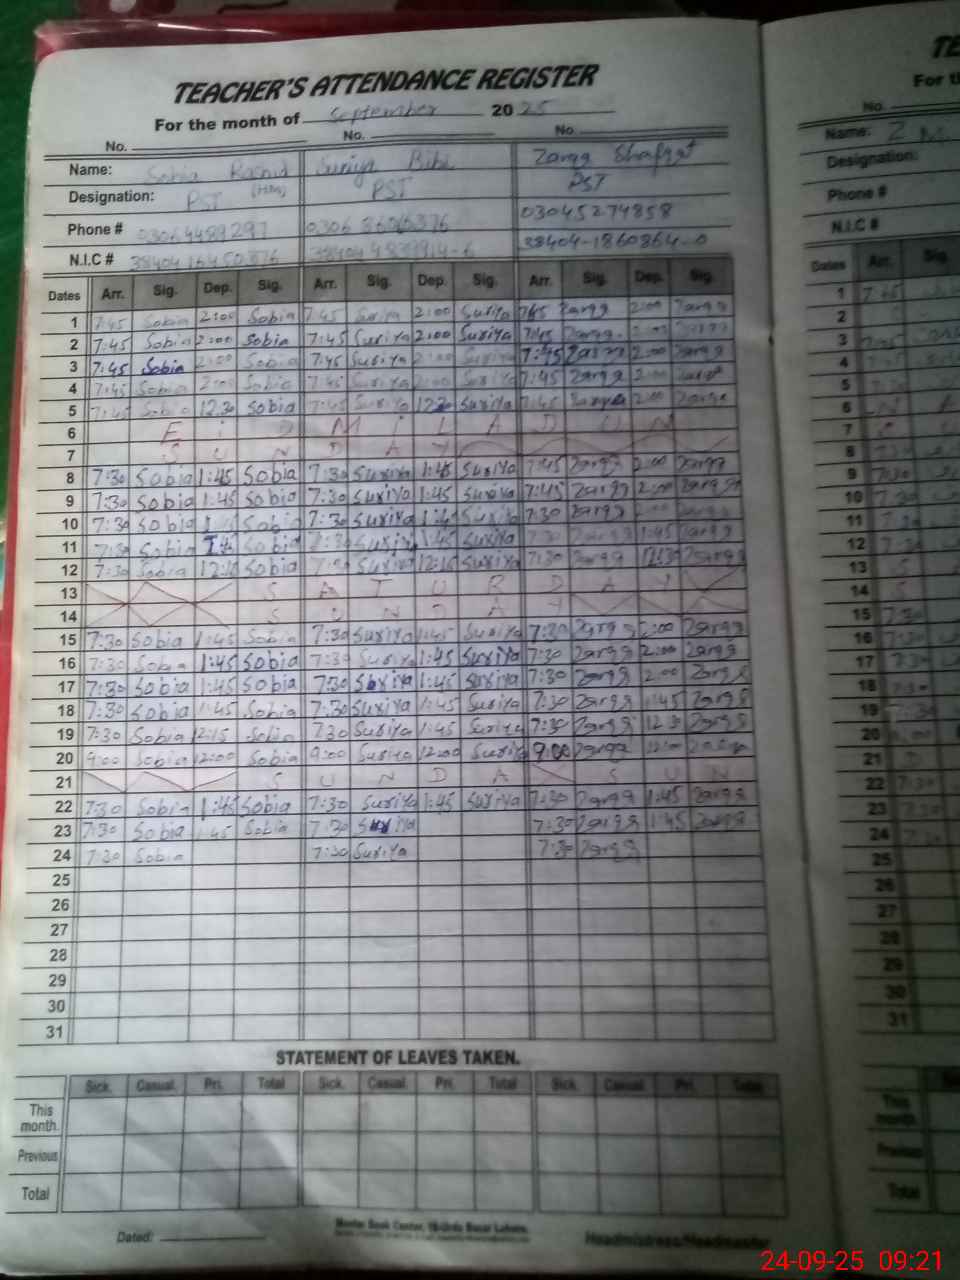 TEACHER'S ATTENDANCE REGISTER
For the month of September 2025
No. No. No.
Name: Sobia Rashid Suriya Bibi Zarqa Shafqat
Designation: PST (HM) PST PST
Phone # 03064489297 0306 03045274858
N.I.C # 38404-1860864-0
Dates Arr. Sig. Dep. Sig. Arr. Sig. Dep. Sig. Arr. Sig. Dep. Sig.
1 7:45 Sobia 2:00 Sobia 7:45 Suriya 2:00 Suriya 7:45 Zarqa 2:00 Zarqa
2 7:45 Sobia 2:00 Sobia 7:45 Suriya 2:00 Suriya 7:45 Zarqa 2:00 Zarqa
3 7:45 Sobia 2:00 Sobia 7:45 Suriya 2:00 Suriya 7:45 Zarqa 2:00 Zarqa
4 7:45 Sobia 2:00 Sobia 7:45 Suriya 2:00 Suriya 7:45 Zarqa 2:00
5 7:45 Sobia 12:30 Sobia 7:45 Suriya 12:30 Suriya 7:45 2:00 Zarqa
6 E i D M i L A D U N
7 S U N D A Y
8 7:30 Sobia 1:45 Sobia 7:30 Suriya 1:45 Suriya 7:45 Zarqa 2:00 Zarqa
9 7:30 Sobia 1:45 Sobia 7:30 Suriya 1:45 Suriya 7:45 Zarqa 2:00 Zarqa
10 7:30 Sobia Sobia 7:30 Suriya 1:45 Suriya 7:30 Zarqa 2:00 Zarqa
11 7:30 Sobia 1:45 Sobia 7:30 Suriya 1:45 Suriya 7:30 Zarqa 1:45 Zarqa
12 7:30 Sobia 12:15 Sobia 7:30 Suriya 12:15 Suriya 7:30 Zarqa 12:30 Zarqa
13 S A T U R D A Y
14 S U N D A Y
15 7:30 Sobia 1:45 Sobia 7:30 Suriya 1:45 Suriya 7:30 Zarqa 2:00 Zarqa
16 7:30 Sobia 1:45 Sobia 7:30 Suriya 1:45 Suriya 7:30 Zarqa 2:00 Zarqa
17 7:30 Sobia 1:45 Sobia 7:30 Suriya 1:45 Suriya 7:30 Zarqa 2:00 Zarqa
18 7:30 Sobia 1:45 Sobia 7:30 Suriya 1:45 Suriya 7:30 Zarqa 1:45 Zarqa
19 7:30 Sobia 12:15 Sobia 7:30 Suriya 1:45 Suriya 7:30 Zarqa 12:30 Zarqa
20 9:00 Sobia 12:00 Sobia 9:00 Suriya 12:00 Suriya 9:00 Zarqa 12:00 Zarqa
21 S U N D A S U N
22 7:30 Sobia 1:45 Sobia 7:30 Suriya 1:45 Suriya 7:30 Zarqa 1:45 Zarqa
23 7:30 Sobia 1:45 Sobia 7:30 Suriya 7:30 Zarqa 1:45 Zarqa
24 7:30 Sobia 7:30 Suriya 7:30 Zarqa
25
26
27
28
29
30
31
STATEMENT OF LEAVES TAKEN.
Sick. Casual. Pri. Total Sick. Casual. Pri. Total Sick. Casual. Pri. Total
This month.
Previous
Total
Dated:
Master Book Center, Urdu Bazar Lahore.
Headmistress/Headmaster
TE
For t
No.
Name: Z
Designation:
Phone #
N.I.C #
Dates Arr. Sig.
1 7:45
2
3 7:45
4
5
6
7
8
9 7:30
10 7:30
11
12
13 S
14 S
15 7:30
16
17
18
19
20
21
22
23
24
25
26
27
28
29
30
31
This month.
Previous
Total
24-09-25 09:21